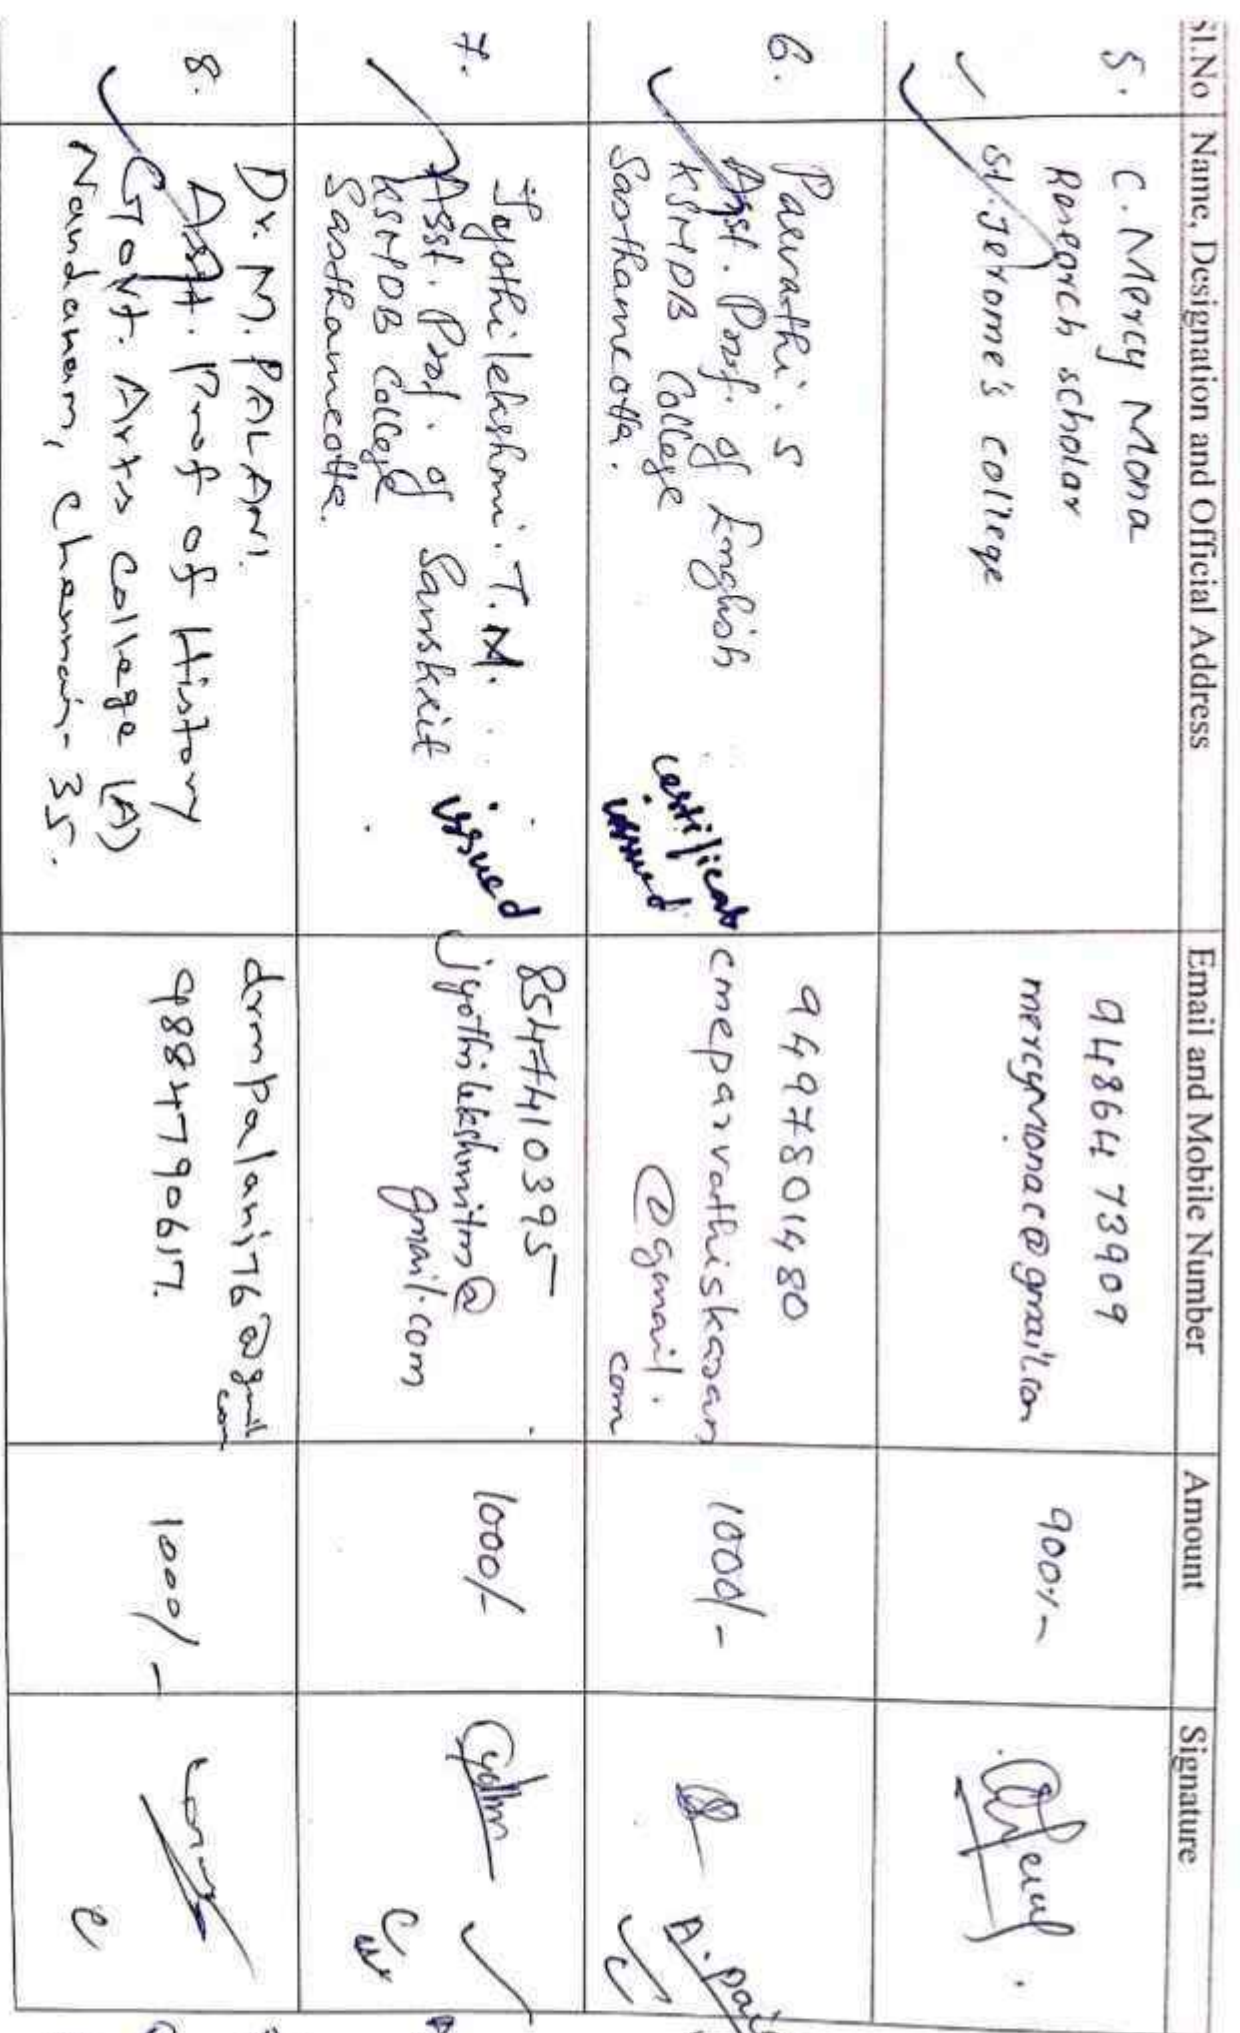 Sl.No Name, Designation and Official Address Email and Mobile Number Amount Signature
5.
C. Mercy Mona
Research scholar
St. Jerome's college
94864 73909
mercymonac@gmail.com
900/-
6.
Parvathi. S
Asst. Prof. of English
KSMDB College
Sasthamcotta.
certificate
issued
9497801480
cmeparvathiskaran
@gmail.
com
1000/-
A. pai
7.
Jyothilekshmi. T.M.
Asst. Prof. of Sanskrit
KSMDB College
Sasthamcotta.
issued
8547410395
jyothilekshmitm@
gmail.com
1000/-
8.
Dr. M. PALANI
Asst. Prof of History
Govt. Arts college (A)
Nandanam, Chennai- 35.
drmpalani76@gmail
com
9884790617.
1000/-